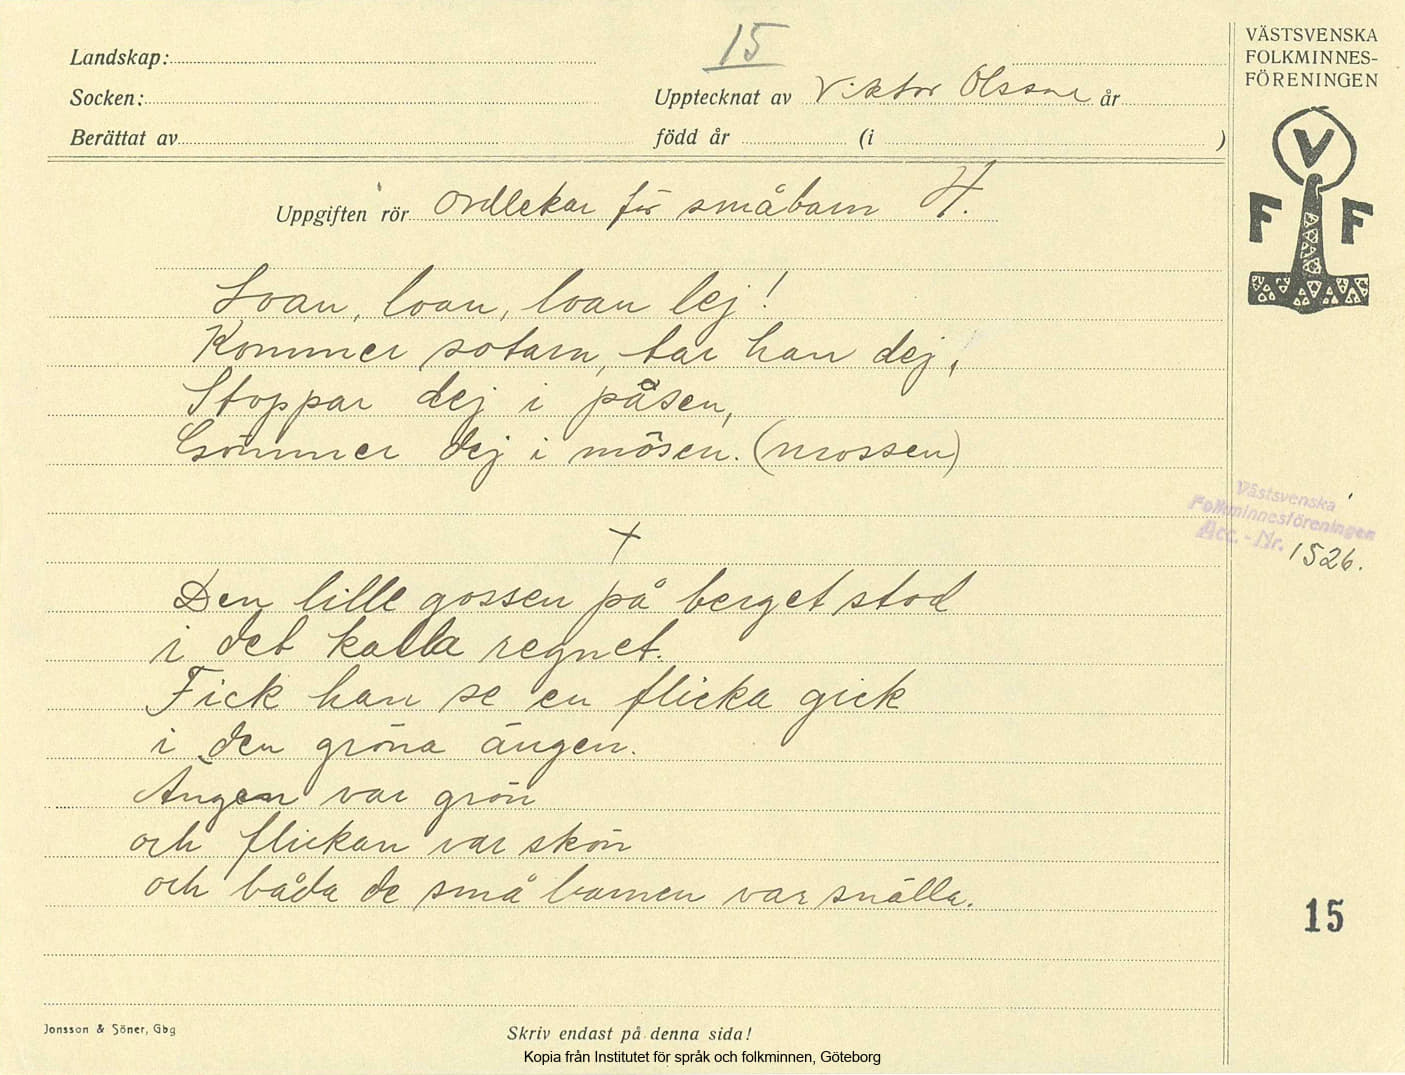 15
Landskap:
Socken:
Upptecknat av Viktor Olsson år
Berättat av
född år (i )
VÄSTSVENSKA
FOLKMINNES-
FÖRENINGEN
V
F F
Uppgiften rör Ordlekar för småbarn H.
Loan, loan, loan lej!
Kommer sotarn, tar han dej,
Stoppar dej i påsen,
Gömmer dej i mösen. (mossen)
Västsvenska
Folkminnesföreningen
Acc. - Nr. 1526.
+
Den lille gossen på berget stod
i det kalla regnet.
Fick han se en flicka gick
i den gröna ängen.
Ängen var grön
och flickan var skön
och båda de små barnen var snälla.
15
Jonsson & Söner, Gbg
Skriv endast på denna sida!
Kopia från Institutet för språk och folkminnen, Göteborg